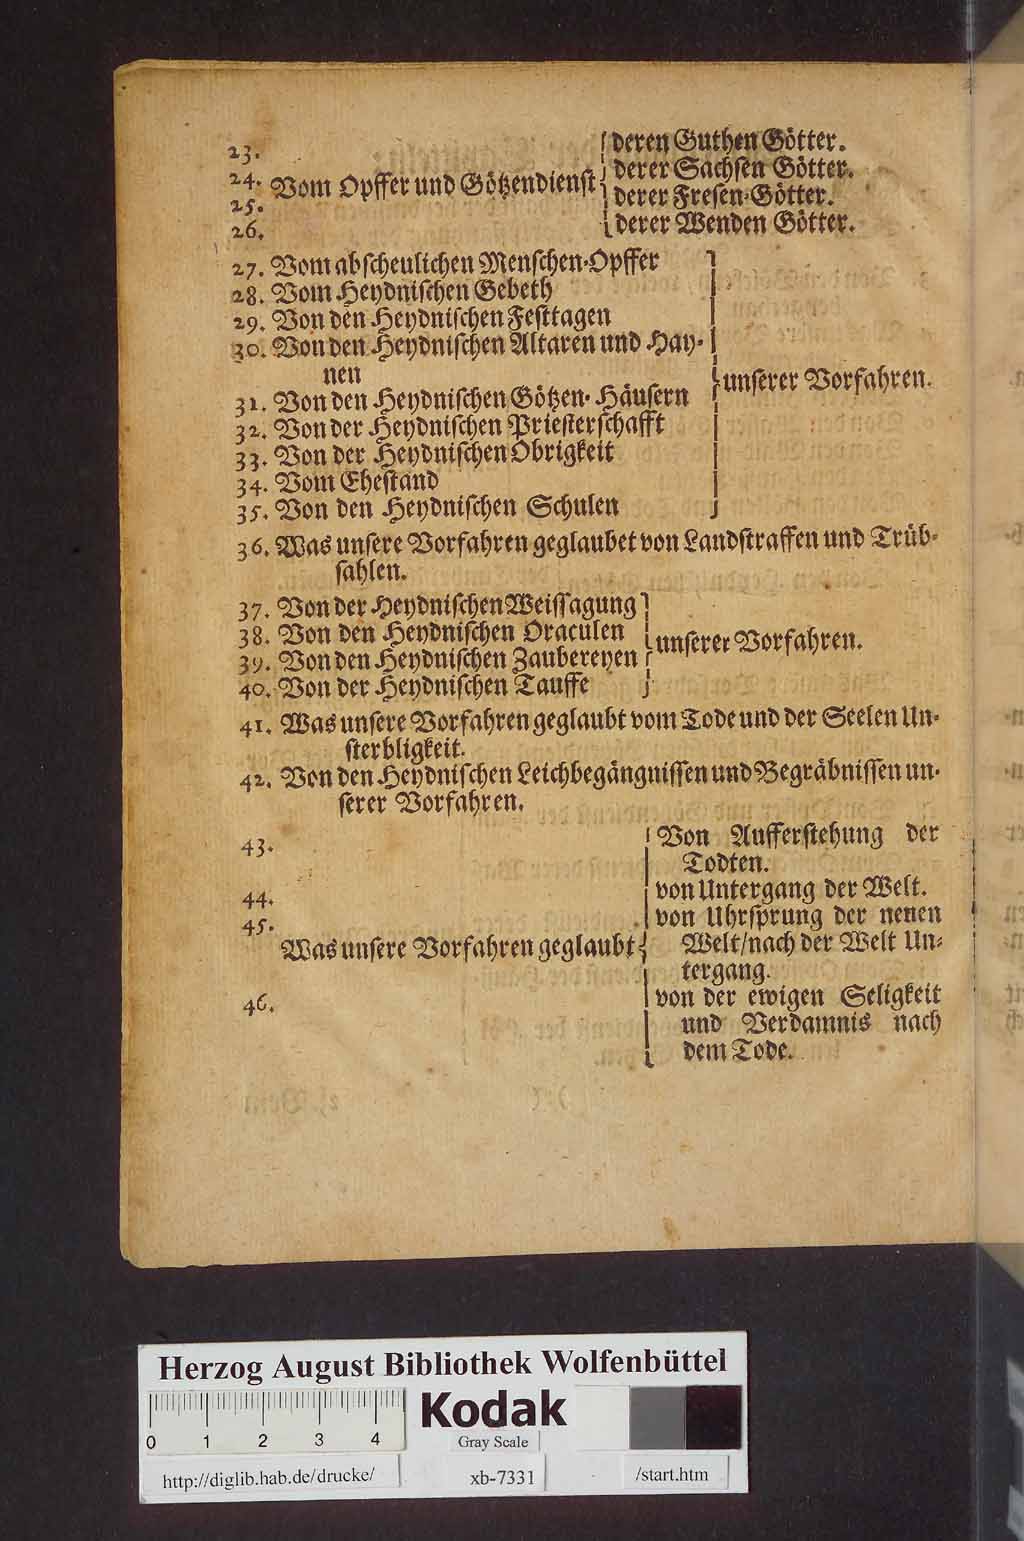 23.
24. Vom Opffer und Götzendienst
25.
26.
deren Guthen Götter.
derer Sachsen Götter.
derer Fresen-Götter.
derer Wenden Götter.
27. Vom abscheulichen Menschen-Opffer
28. Vom Heydnischen Gebeth
29. Von den Heydnischen Festtagen
30. Von den Heydnischen Altaren und Hay-
nen
31. Von den Heydnischen Götzen-Häusern
32. Von der Heydnischen Priesterschafft
33. Von der Heydnischen Obrigkeit
34. Vom Ehestand
35. Von den Heydnischen Schulen
unserer Vorfahren.
36. Was unsere Vorfahren geglaubet von Landstraffen und Trüb-
sahlen.
37. Von der Heydnischen Weissagung
38. Von den Heydnischen Oraculen
39. Von den Heydnischen Zaubereyen
40. Von der Heydnischen Tauffe
unserer Vorfahren.
41. Was unsere Vorfahren geglaubt vom Tode und der Seelen Un-
sterbligkeit.
42. Von den Heydnischen Leichbegängnissen und Begräbnissen un-
serer Vorfahren.
43.
44.
45.
Was unsere Vorfahren geglaubt
46.
Von Aufferstehung der
Todten.
von Untergang der Welt.
von Uhrsprung der neuen
Welt/nach der Welt Un-
tergang.
von der ewigen Seligkeit
und Verdamnis nach
dem Tode.
Herzog August Bibliothek Wolfenbüttel
Kodak
Gray Scale
0 1 2 3 4
http://diglib.hab.de/drucke/
xb-7331
/start.htm